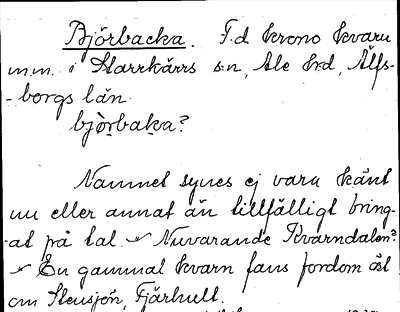 Björbacka. F.d. krono kvarn
m.m. i Starrkärrs s:n, Ale hd, Älfs-
-borgs län.
bjò̤rbaka?
Namnet synes ej vara känt
nu eller annat än tillfälligt bring-
-at på tal. Nuvarande Kvarndalen?
En gammal kvarn fans fordom öst
om Stensjön, Fjärhult.